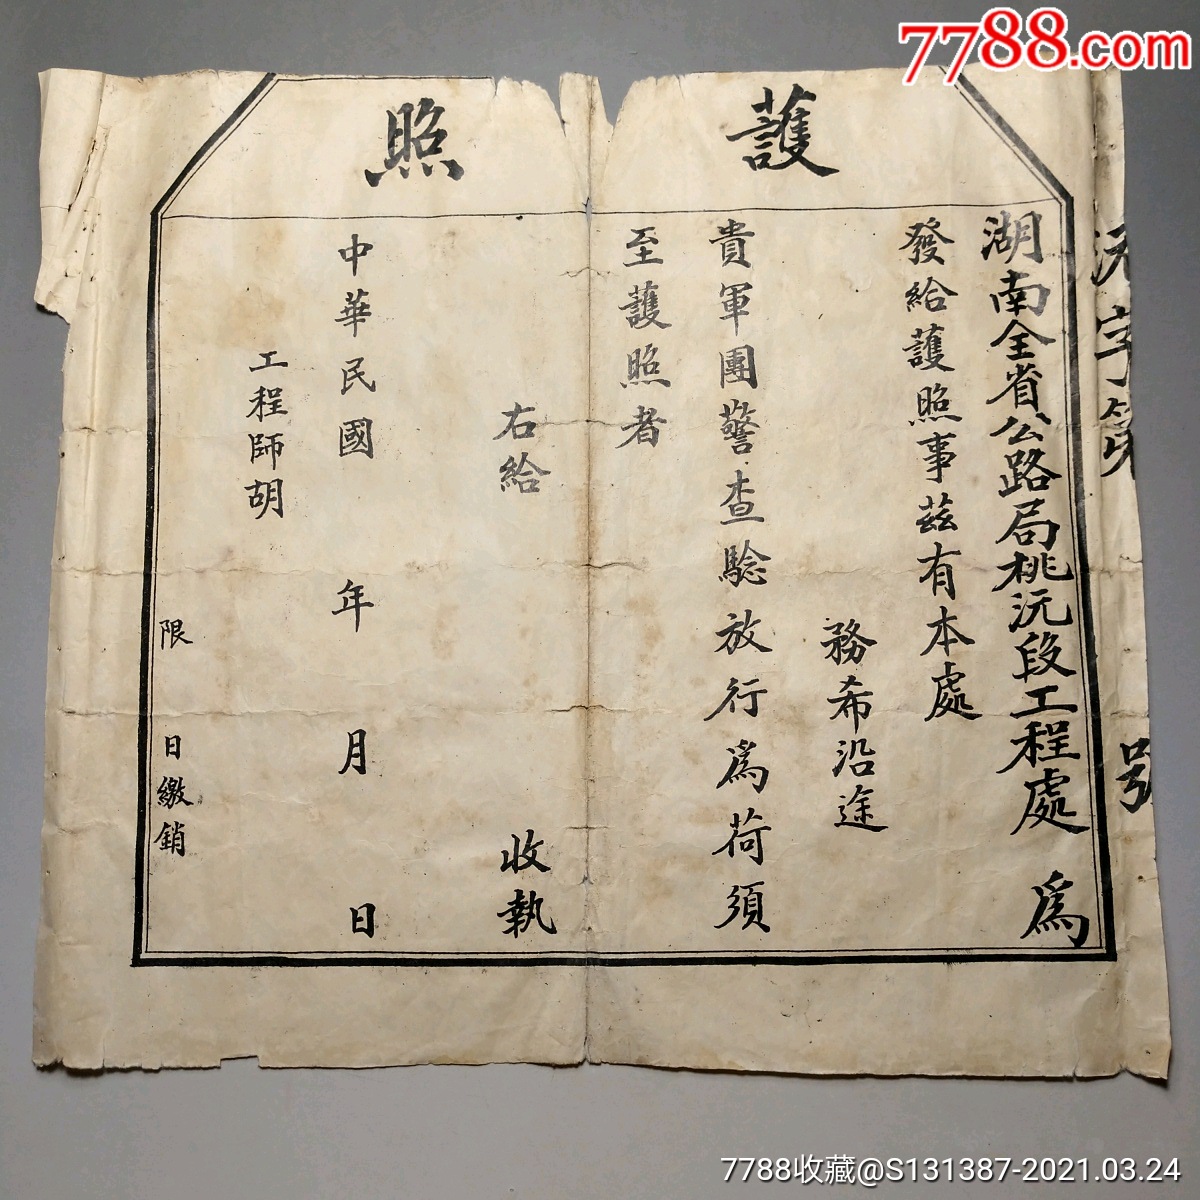 7788.com
護照
沅字第 號
湖南全省公路局桃沅段工程處 為
發給護照事茲有本處
務希沿途
貴軍團警查驗放行為荷須
至護照者
右給 收執
中華民國 年 月 日
工程師胡
限 日繳銷
7788收藏@S131387-2021.03.24